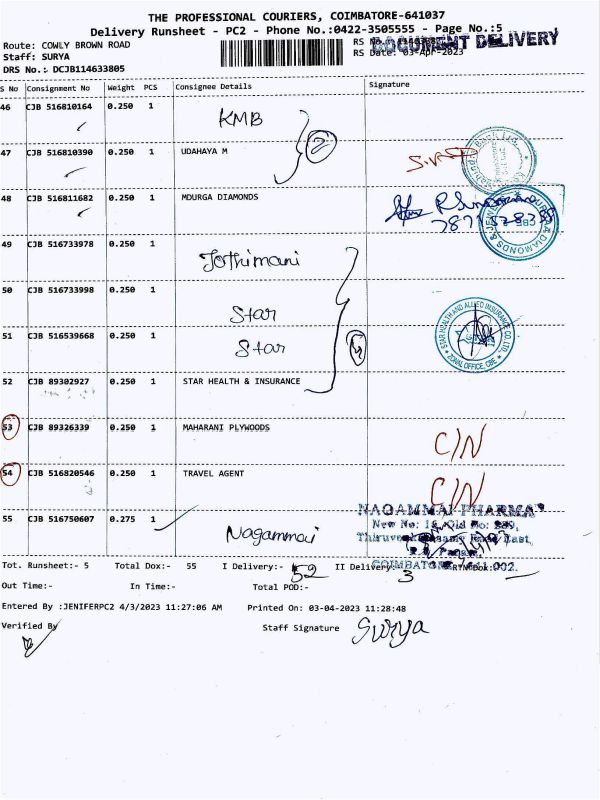 THE PROFESSIONAL COURIERS, COIMBATORE-641037
Delivery Runsheet - PC2 - Phone No.:0422-3505555 - Page No.:5
Route: COWLY BROWN ROAD
DOCUMENT DELIVERY
Staff: SURYA
RS Date: 03-Apr-2023
DRS No.: DCJB114633805
S No Consignment No Weight PCS Consignee Details Signature
46 CJB 516810164 0.250 1 KMB
2
47 CJB 516810390 0.250 1 UDAHAYA M
48 CJB 516811682 0.250 1 MDURGA DIAMONDS
49 CJB 516733978 0.250 1 Jothimani
50 CJB 516733998 0.250 1 Star
51 CJB 516539668 0.250 1 Star
4
STAR HEALTH AND ALLIED INSURANCE CO. LTD.
ZONAL OFFICE, CBE
52 CJB 89302927 0.250 1 STAR HEALTH & INSURANCE
53 CJB 89326339 0.250 1 MAHARANI PLYWOODS C/N
54 CJB 516820546 0.250 1 TRAVEL AGENT C/N
55 CJB 516750607 0.275 1 Nagammai
NAGAMMAI PHARMA
New No: Old No:
East,
COIMBATORE 641 002.
Tot. Runsheet:- 5 Total Dox:- 55 I Delivery:- 52 II Delivery:- 3 RTN Dox:-
Out Time:- In Time:- Total POD:-
Entered By :JENIFERPC2 4/3/2023 11:27:06 AM Printed On: 03-04-2023 11:28:48
Verified By Staff Signature Surya